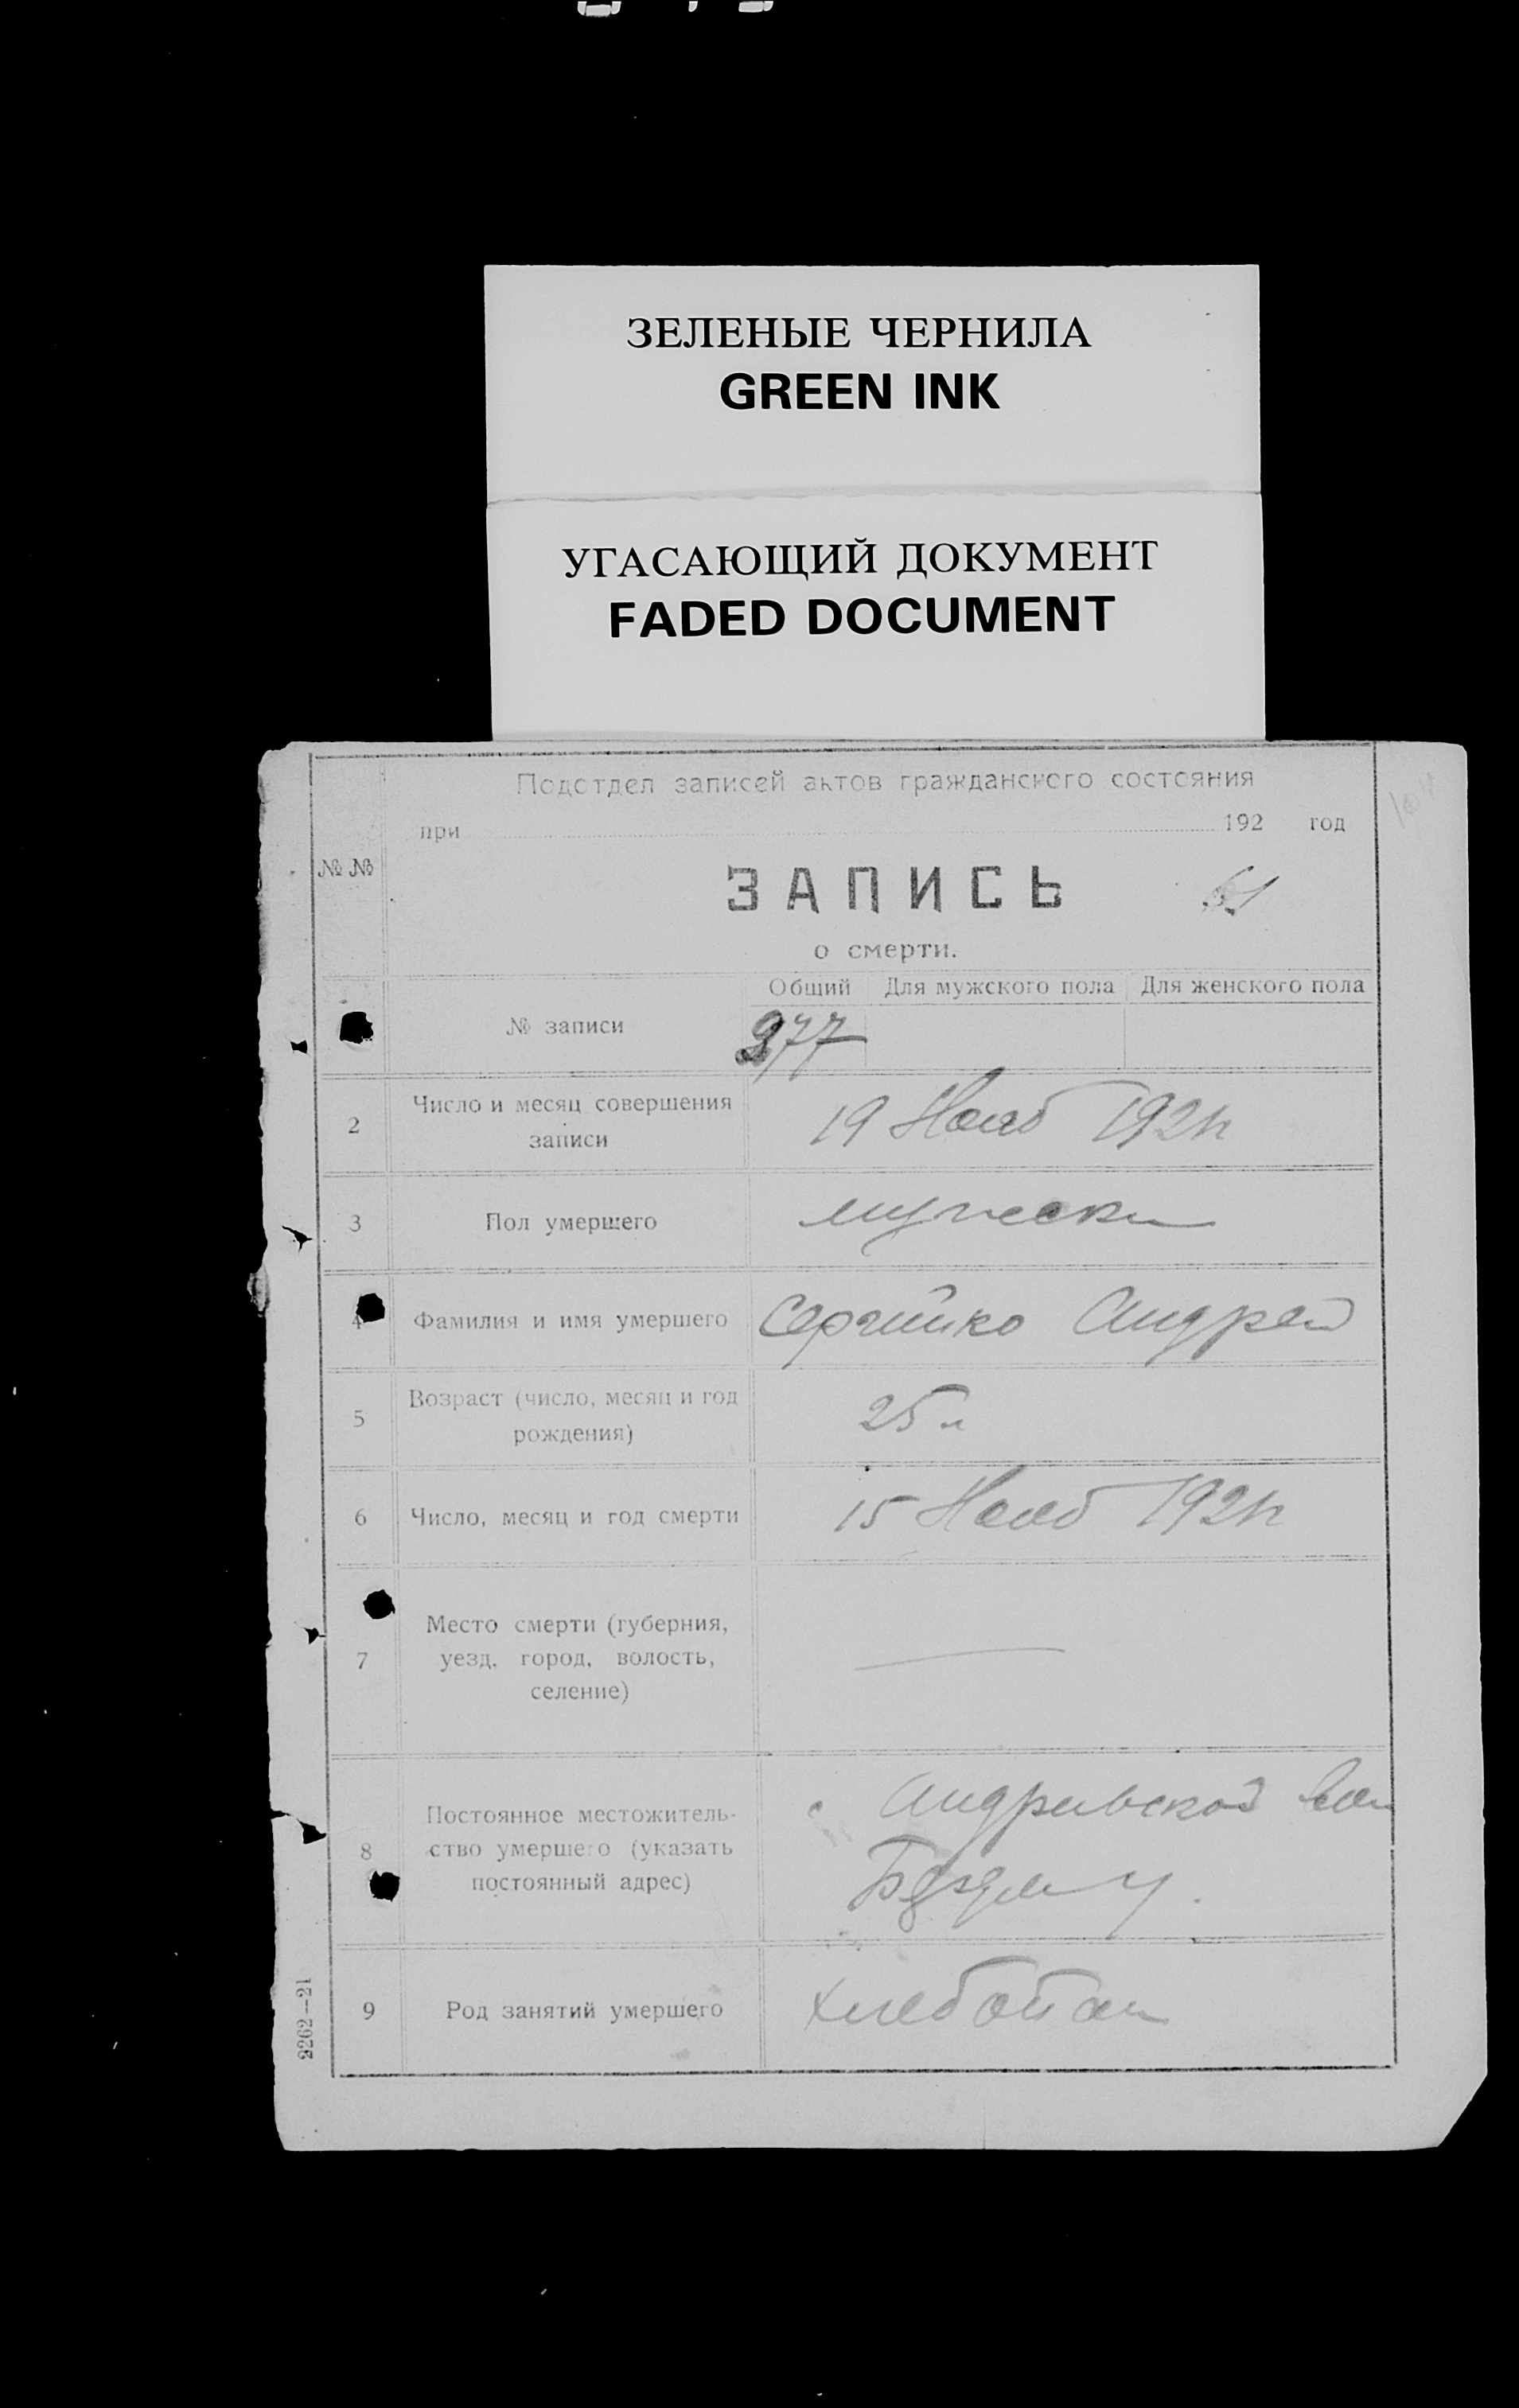 ЗЕЛЕНЫЕ ЧЕРНИЛА
GREEN INK
УГАСАЮЩИЙ ДОКУМЕНТ
FADED DOCUMENT
Подотдел записей актов гражданского состояния
при 192 год
№ №
ЗАПИСЬ
о смерти.
Общий Для мужского пола Для женского пола
№ записи 277
2 Число и месяц совершения
записи
19 Нояб 192
3 Пол умершего мужески
4 Фамилия и имя умершего Сергийко Андрей
5 Возраст (число, месяц и год
рождения)
25 л
6 Число, месяц и год смерти 15 Нояб 192
7 Место смерти (губерния,
уезд, город, волость,
селение)
8 Постоянное местожитель-
ство умершего (указать
постоянный адрес)
с Андриевской вол
у.
9 Род занятий умершего хлебопаш
2262—21